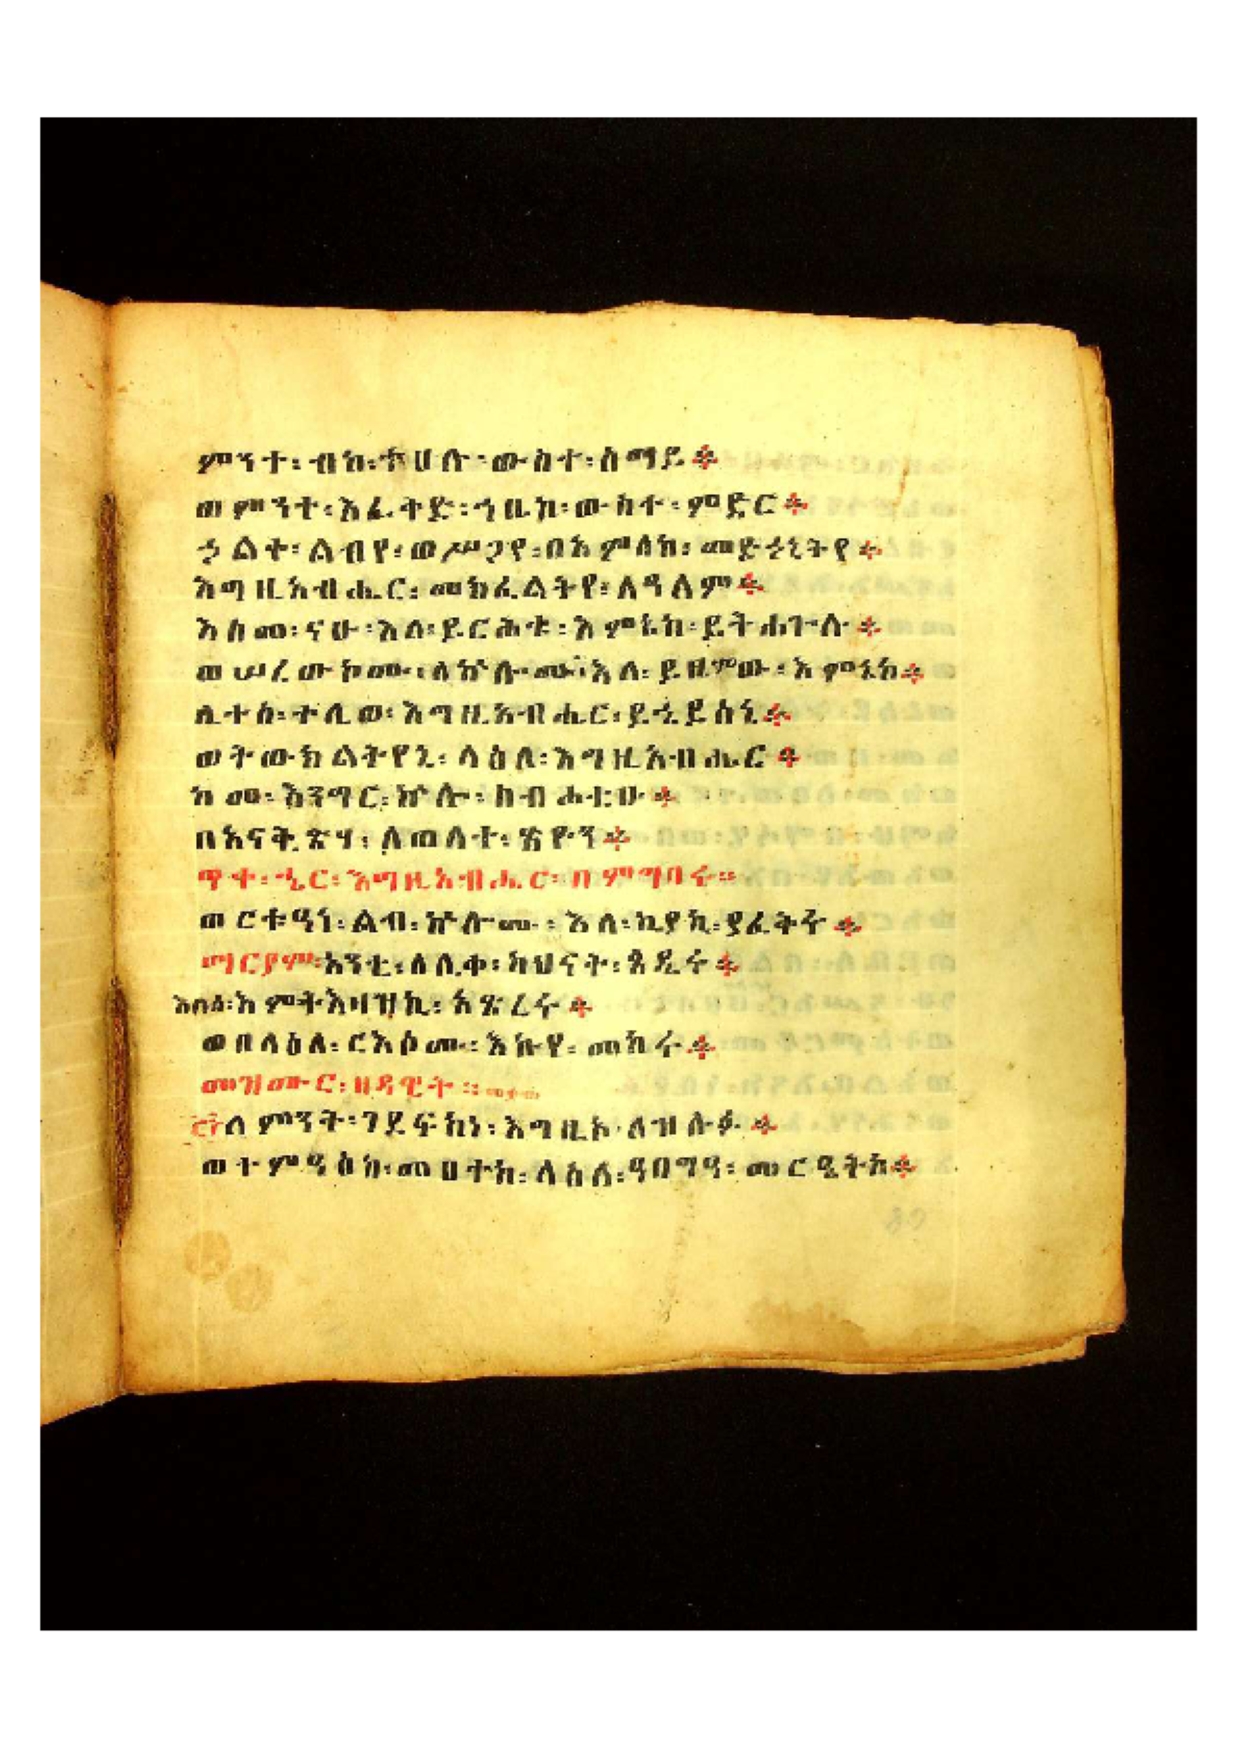 ምንተ፡ ብከ፡ ተሀሉ፡ ውስተ፡ ሰማይ፨
ወምንተ፡ እፈትድ፡ ኀቤከ፡ ውስተ፡ ምድር፨
ኃልቀ፡ ልብየ፡ ወሥጋየ፡ በአምላከ፡ መድኃኒትየ፨
እግዚአብሔር፡ መክፈልትየ፡ ለዓለም፨
እስመ፡ ናሁ፡ እለ፡ ይርሕቁ፡ እምኔከ፡ ይትሐጐሉ፨
ወሠረውኮሙ፡ ለኵሎሙ፡ እለ፡ ይዘምው፡ እምኔከ፨
ሊተሰ፡ ተሊወ፡ እግዚአብሔር፡ ይኄይሰኒ፨
ወትውክልትየኒ፡ ላዕለ፡ እግዚአብሔር፨
ከመ፡ እንግር፡ ኵሎ፡ ስብሐቲሁ፨
በአናቅጽሃ፡ ለወለተ፡ ጽዮን፨
ጥቀ፡ ኄር፡ እግዚአብሔር፡ በምግባሩ።
ወርቱዓነ፡ ልብ፡ ኵሎሙ፡ እለ፡ ኪያኪ፡ ያፈቅሩ፨
ማርያም፡ አንቲ፡ ለሊቀ፡ ካህናት፡ ጼዴሩ፨
እስከ፡ እምትእዛዝኪ፡ አፅረሩ፨
ወበላዕለ፡ ርእሶሙ፡ እኩየ፡ መከሩ፨
መዝሙር፡ ዘዳዊት።
ለምንት፡ ገደፍከነ፡ እግዚኦ፡ ለዝሉፉ፨
ወተምዓዕከ፡ መዐተከ፡ ላዕለ፡ ዓባግዓ፡ መርዔትከ፨